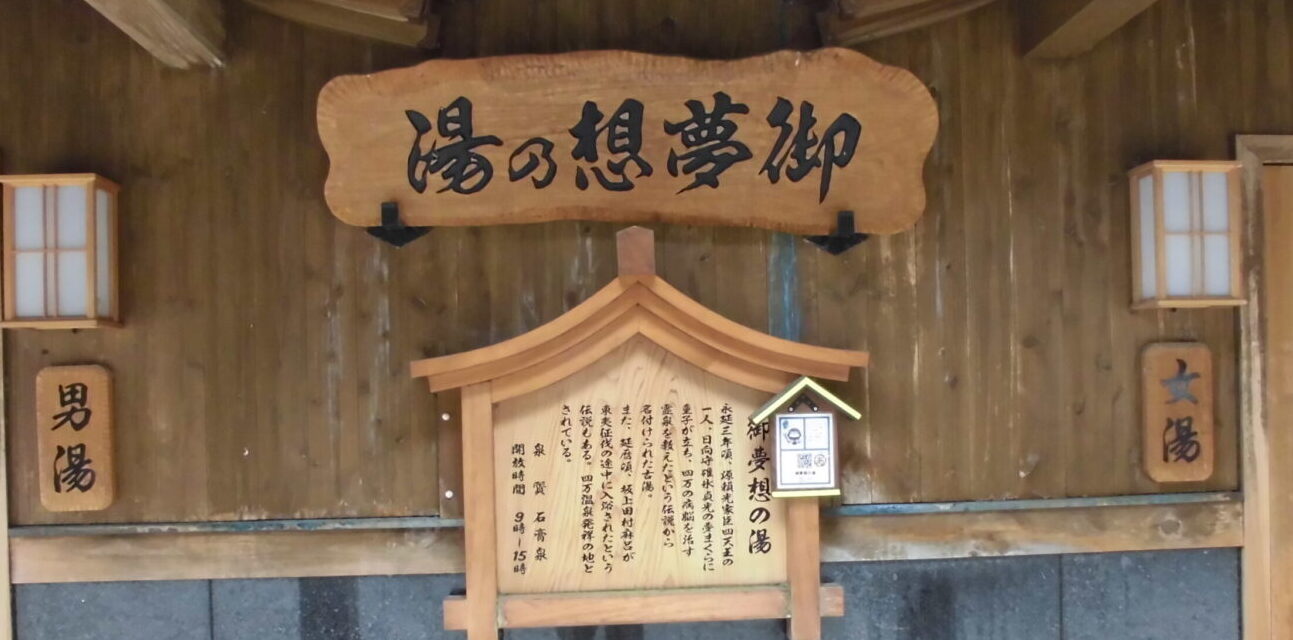 御夢想乃湯
男湯
女湯
御夢想の湯
永延三年頃、源頼光家臣四天王の
一人、日向守碓氷貞光の夢まくらに
童子が立ち、四万の病脳を治す
霊泉を教えたという伝説から
名付けられた古湯。
また、延暦頃、坂上田村麻呂が
東夷征伐の途中に入浴されたという
伝説もある。四万温泉発祥の地と
されている。
泉質 石膏泉
開放時間 9時~15時